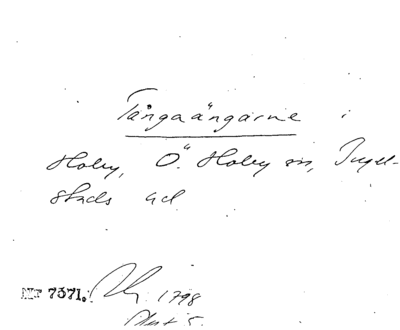 Tångaängarne i
Hoby, Ö. Hoby sn, Ingel-
stads hd
Nr 7371. 1798